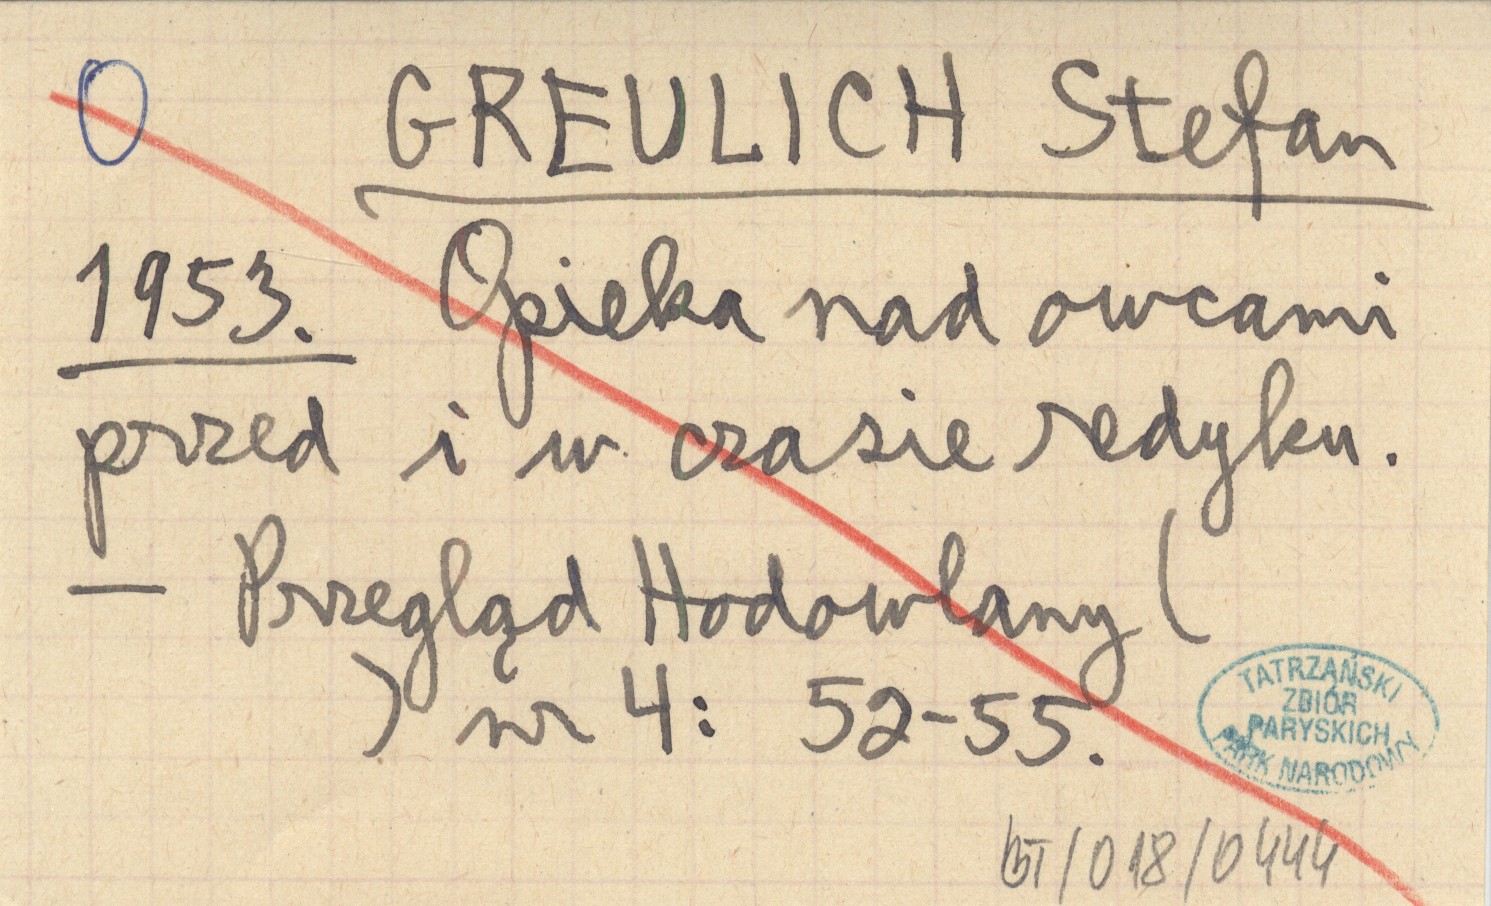 O GREULICH Stefan
1953. Opieka nad owcami
przed i w czasie redyku.
— Przegląd Hodowlany (
) nr 4: 52-55.
TATRZAŃSKI
ZBIÓR
PARYSKICH
PARK NARODOWY
BT/018/0444